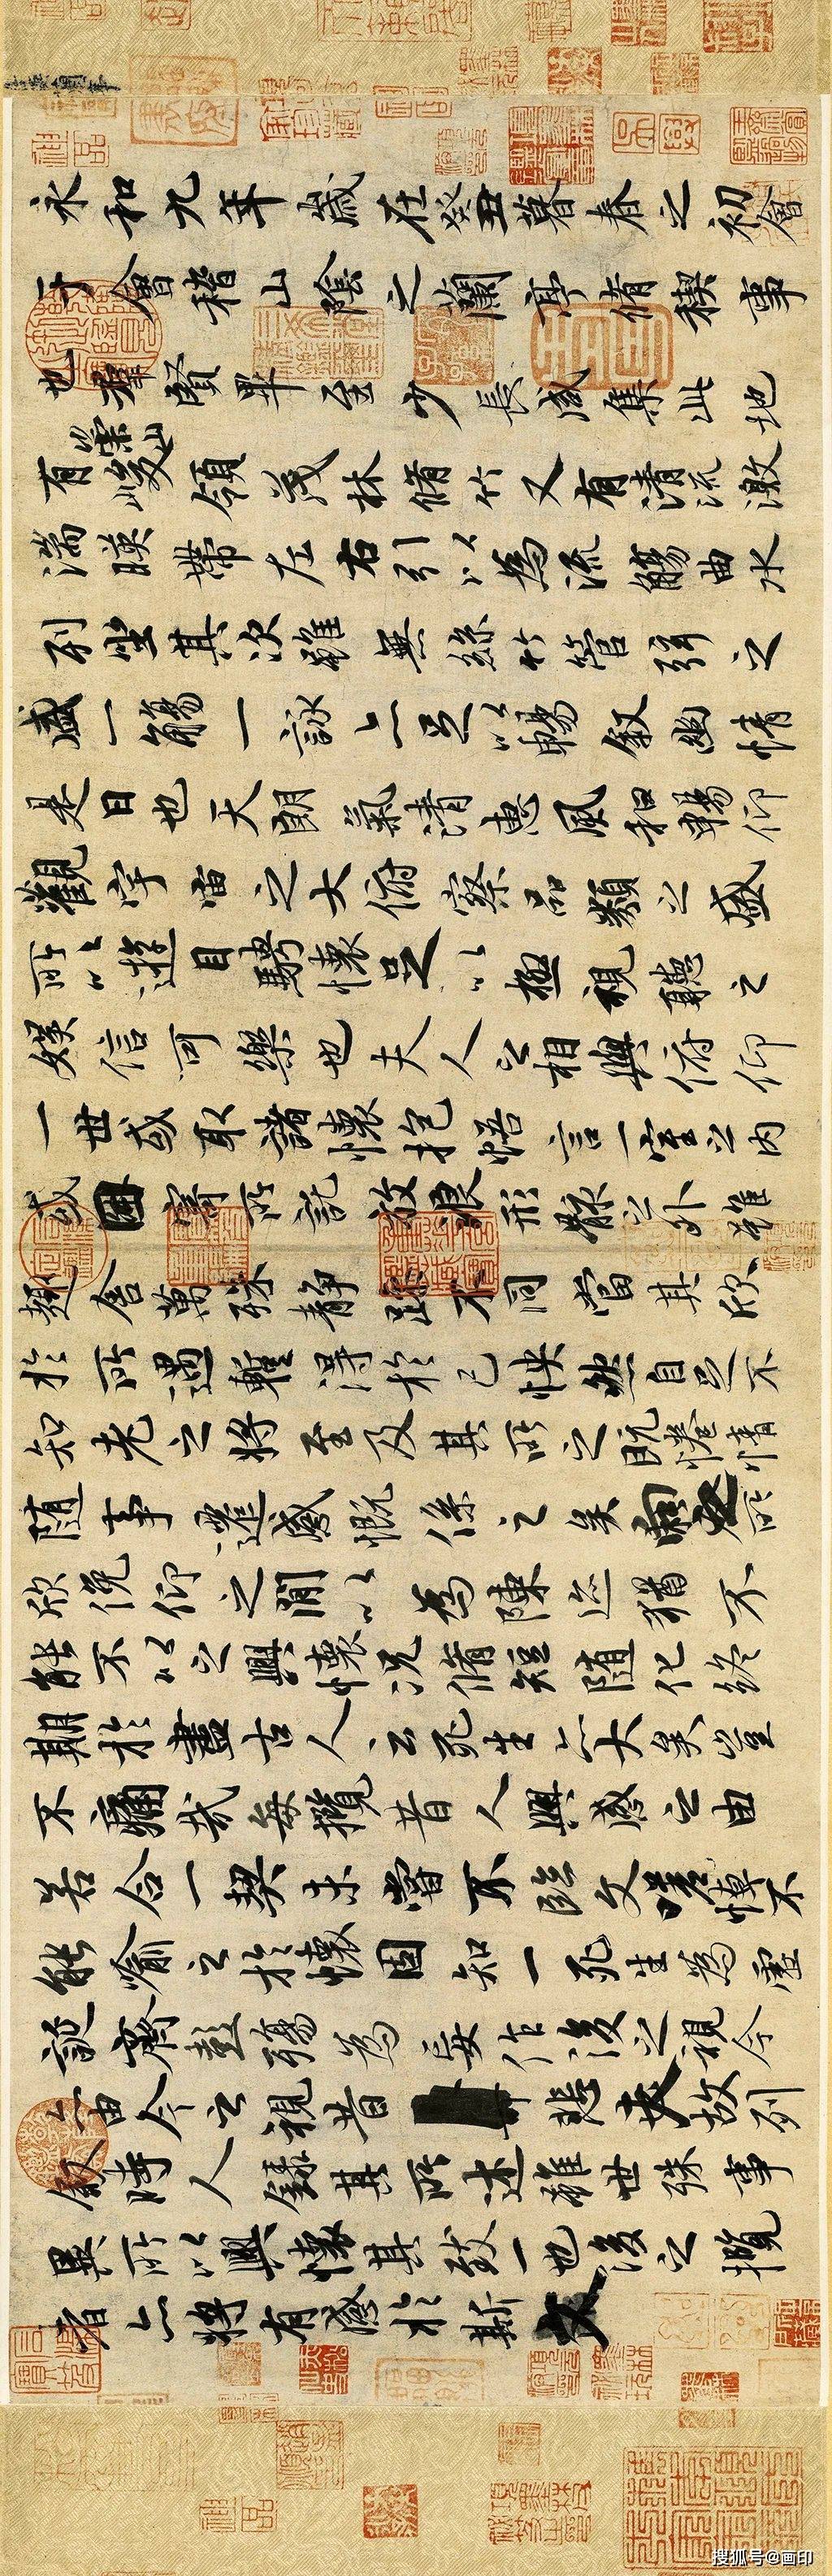 永和九年歲在癸丑暮春之初會
于會稽山陰之蘭亭脩禊事
也羣賢畢至少長咸集此地
有崇山峻領茂林脩竹又有清流激
湍暎帶左右引以為流觴曲水
列坐其次雖無絲竹管弦之
盛一觴一詠亦足以暢敘幽情
是日也天朗氣清惠風和暢仰
觀宇宙之大俯察品類之盛
所以遊目騁懷足以極視聽之
娛信可樂也夫人之相與俯仰
一世或取諸懷抱悟言一室之內
或因寄所託放浪形骸之外雖
趣舍萬殊靜躁不同當其欣
於所遇蹔得於己怏然自足不
知老之將至及其所之既惓情
隨事遷感慨係之矣向之所
欣俛仰之閒以為陳迹猶不
能不以之興懷況脩短隨化終
期於盡古人云死生亦大矣豈
不痛哉每攬昔人興感之由
若合一契未嘗不臨文嗟悼不
能喻之於懷固知一死生為虛
誕齊彭殤為妄作後之視今
亦由今之視昔悲夫故列
敘時人錄其所述雖世殊事
異所以興懷其致一也後之攬
者亦將有感於斯文
搜狐号@画印